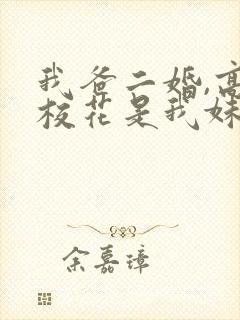 我爸二婚,高
校花是我妹
余嘉璋